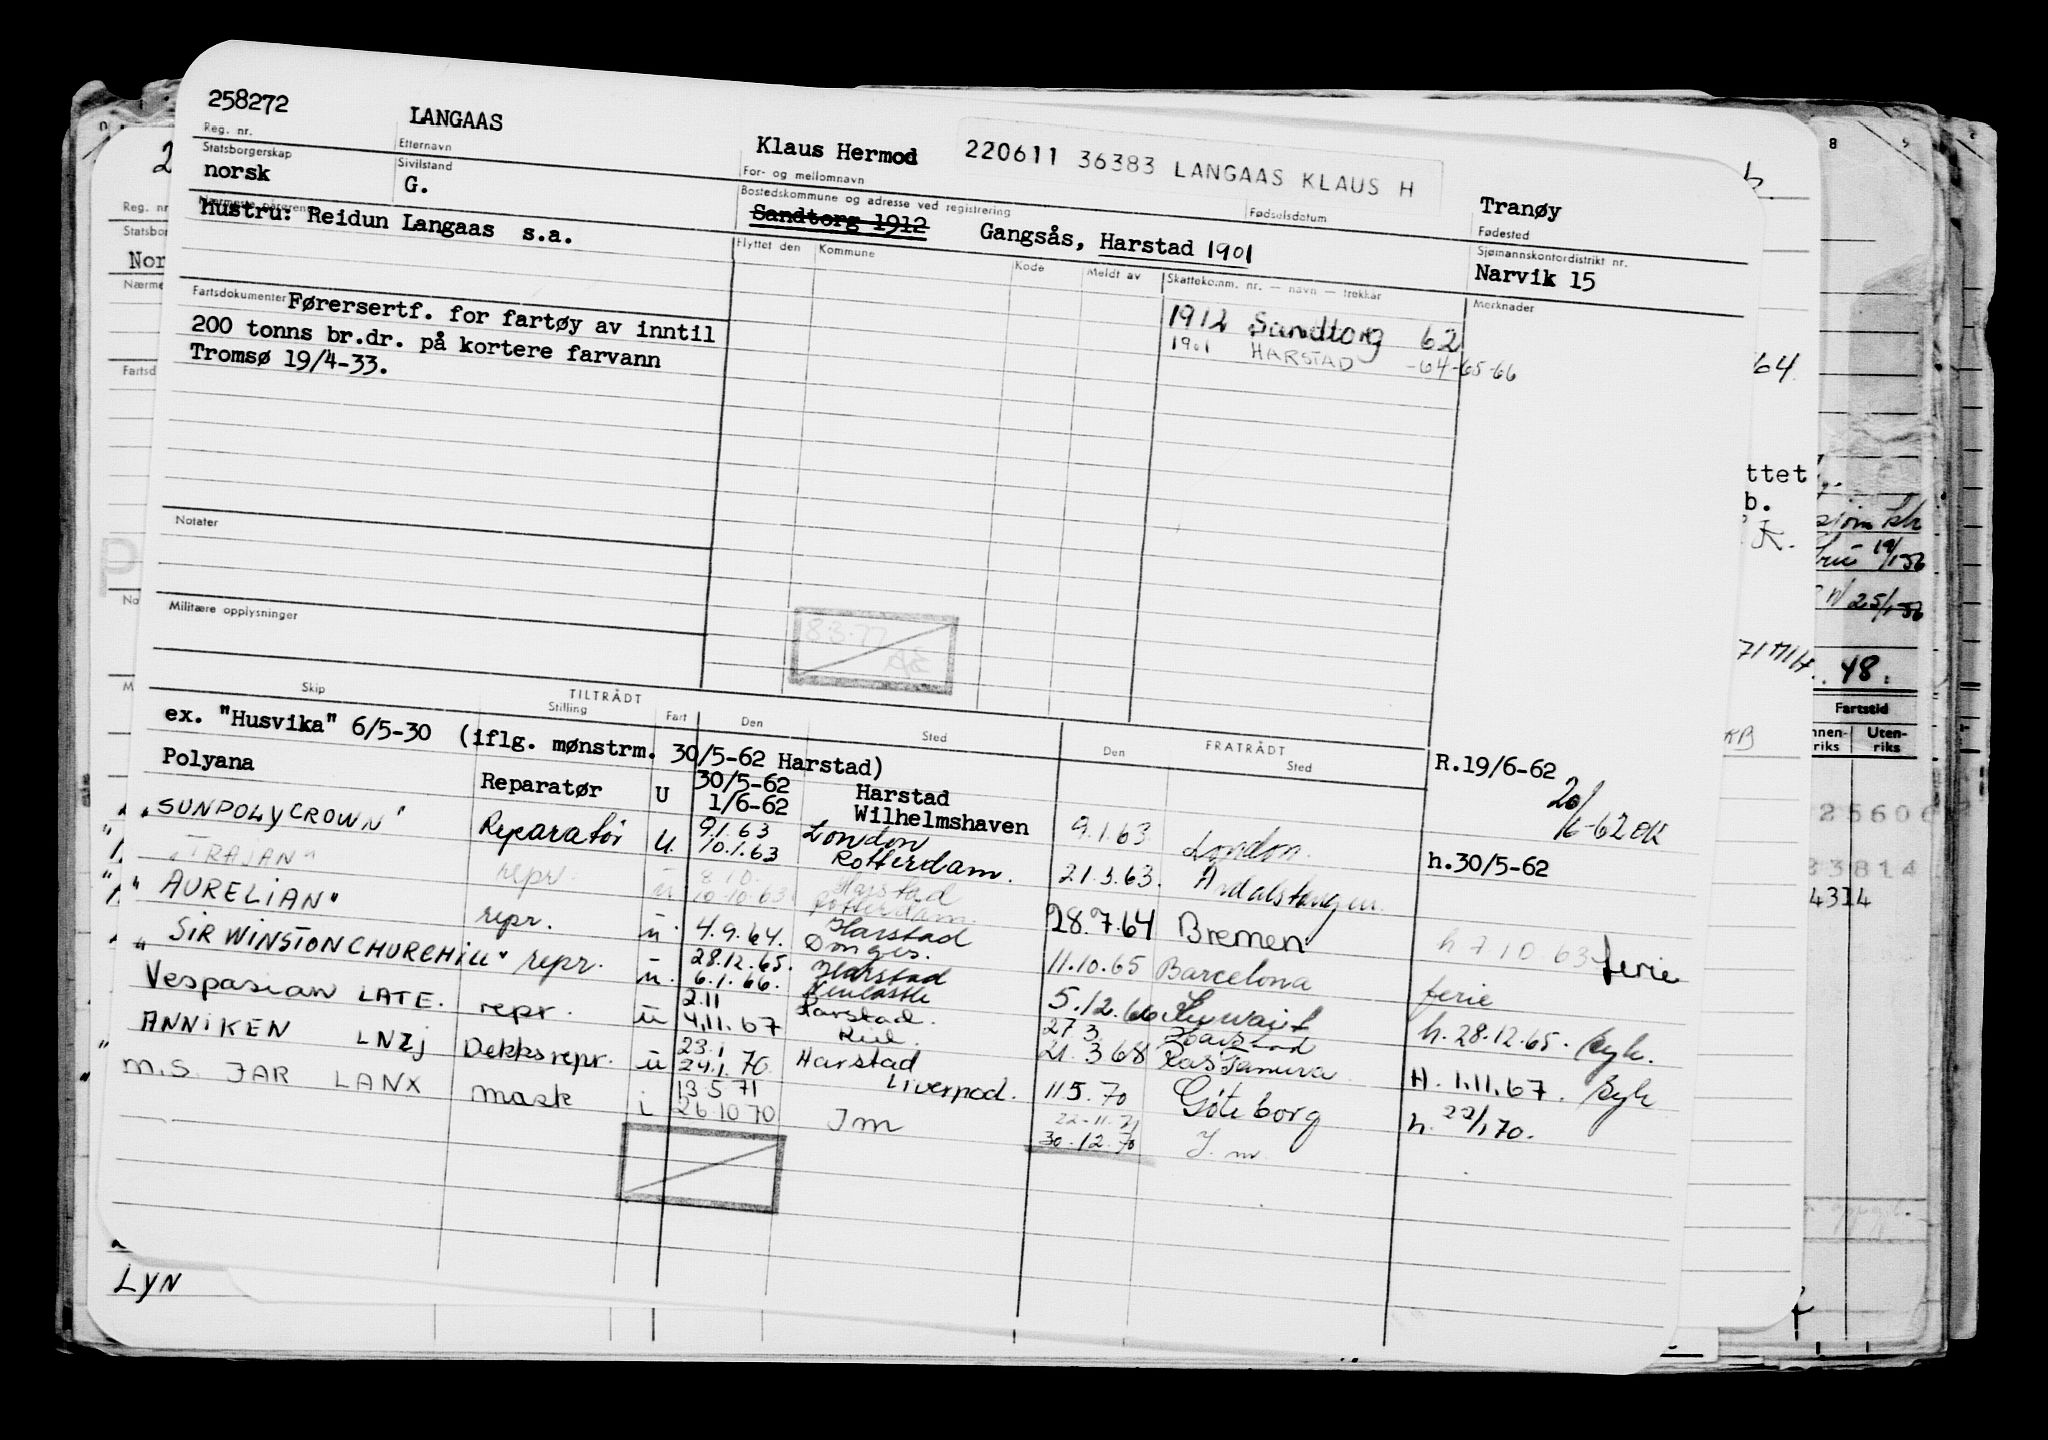 258272 LANGAAS Klaus Hermod 220611 36383 LANGAAS KLAUS H Tranøy
Reg. nr. Etternavn For- og mellomnavn Fødselsdatum Fødested
Statsborgerskap Sivilstand Bostedskommune og adresse ved registrering Sjømannskontordistrikt nr.
norsk G. Sandtorg 1912 Gangsås, Harstad 1901 Narvik 15
Nærmeste pårørende
Hustru: Reidun Langaas s.a.
Flyttet den Kommune Kode Meldt av Skattekomm. nr. — navn — trekkår Merknader
1912 Sandtorg 62
1901 HARSTAD -64-65-66
Fartsdokumenter
Førersertf. for fartøy av inntil
200 tonns br.dr. på kortere farvann
Tromsø 19/4-33.
Notater
Militære opplysninger
8.3.77
TILTRÅDT FRATRÅDT
Skip Stilling Fart Den Sted Den Sted
ex. "Husvika" 6/5-30 (iflg. mønstrm. 30/5-62 Harstad) R.19/6-62
Polyana Reparatør U 30/5-62 Harstad
1/6-62 Wilhelmshaven 9.1.63 London. h.30/5-62
20/6-62 OK
"SUNPOLYCROWN" Reparatør U. 9.1.63 London
10.1.63 Rotterdam. 21.3.63. Årdalstangen.
"TRAJAN" repr. u 8.10. Harstad
10.10.63 Rotterdam. 28.7.64 Bremen h 7 10 63 ferie
"AURELIAN" repr. u 4.9.64. Harstad
Donges. 11.10.65 Barcelona ferie
"SIR WINSTON CHURCHILL" repr. u. 28.12.65. Harstad
6.1.66. Newcastle 5.12.66 Kuwait h. 28.12.65. Syk.
Vespasian LATE. repr. u 2.11 Harstad. 27 3 Harstad
4.11.67 Kiel. 21.3 68 Ras Tanura H. 1.11.67. Syk
ANNIKEN LNZj Dekksrepr. u 23.1 Harstad
24.1.70 Liverpool. 11 5.70 Göteborg h. 22/1 70.
M.S. JAR LANX mask i 13 5 71
26 10 70 Im 22-11.71
30.12.70 I. m.
LYN
64.
ttet
b.
71 MH.
KB
48.
Fartstid
Uten-
riks
25606
33814
4314